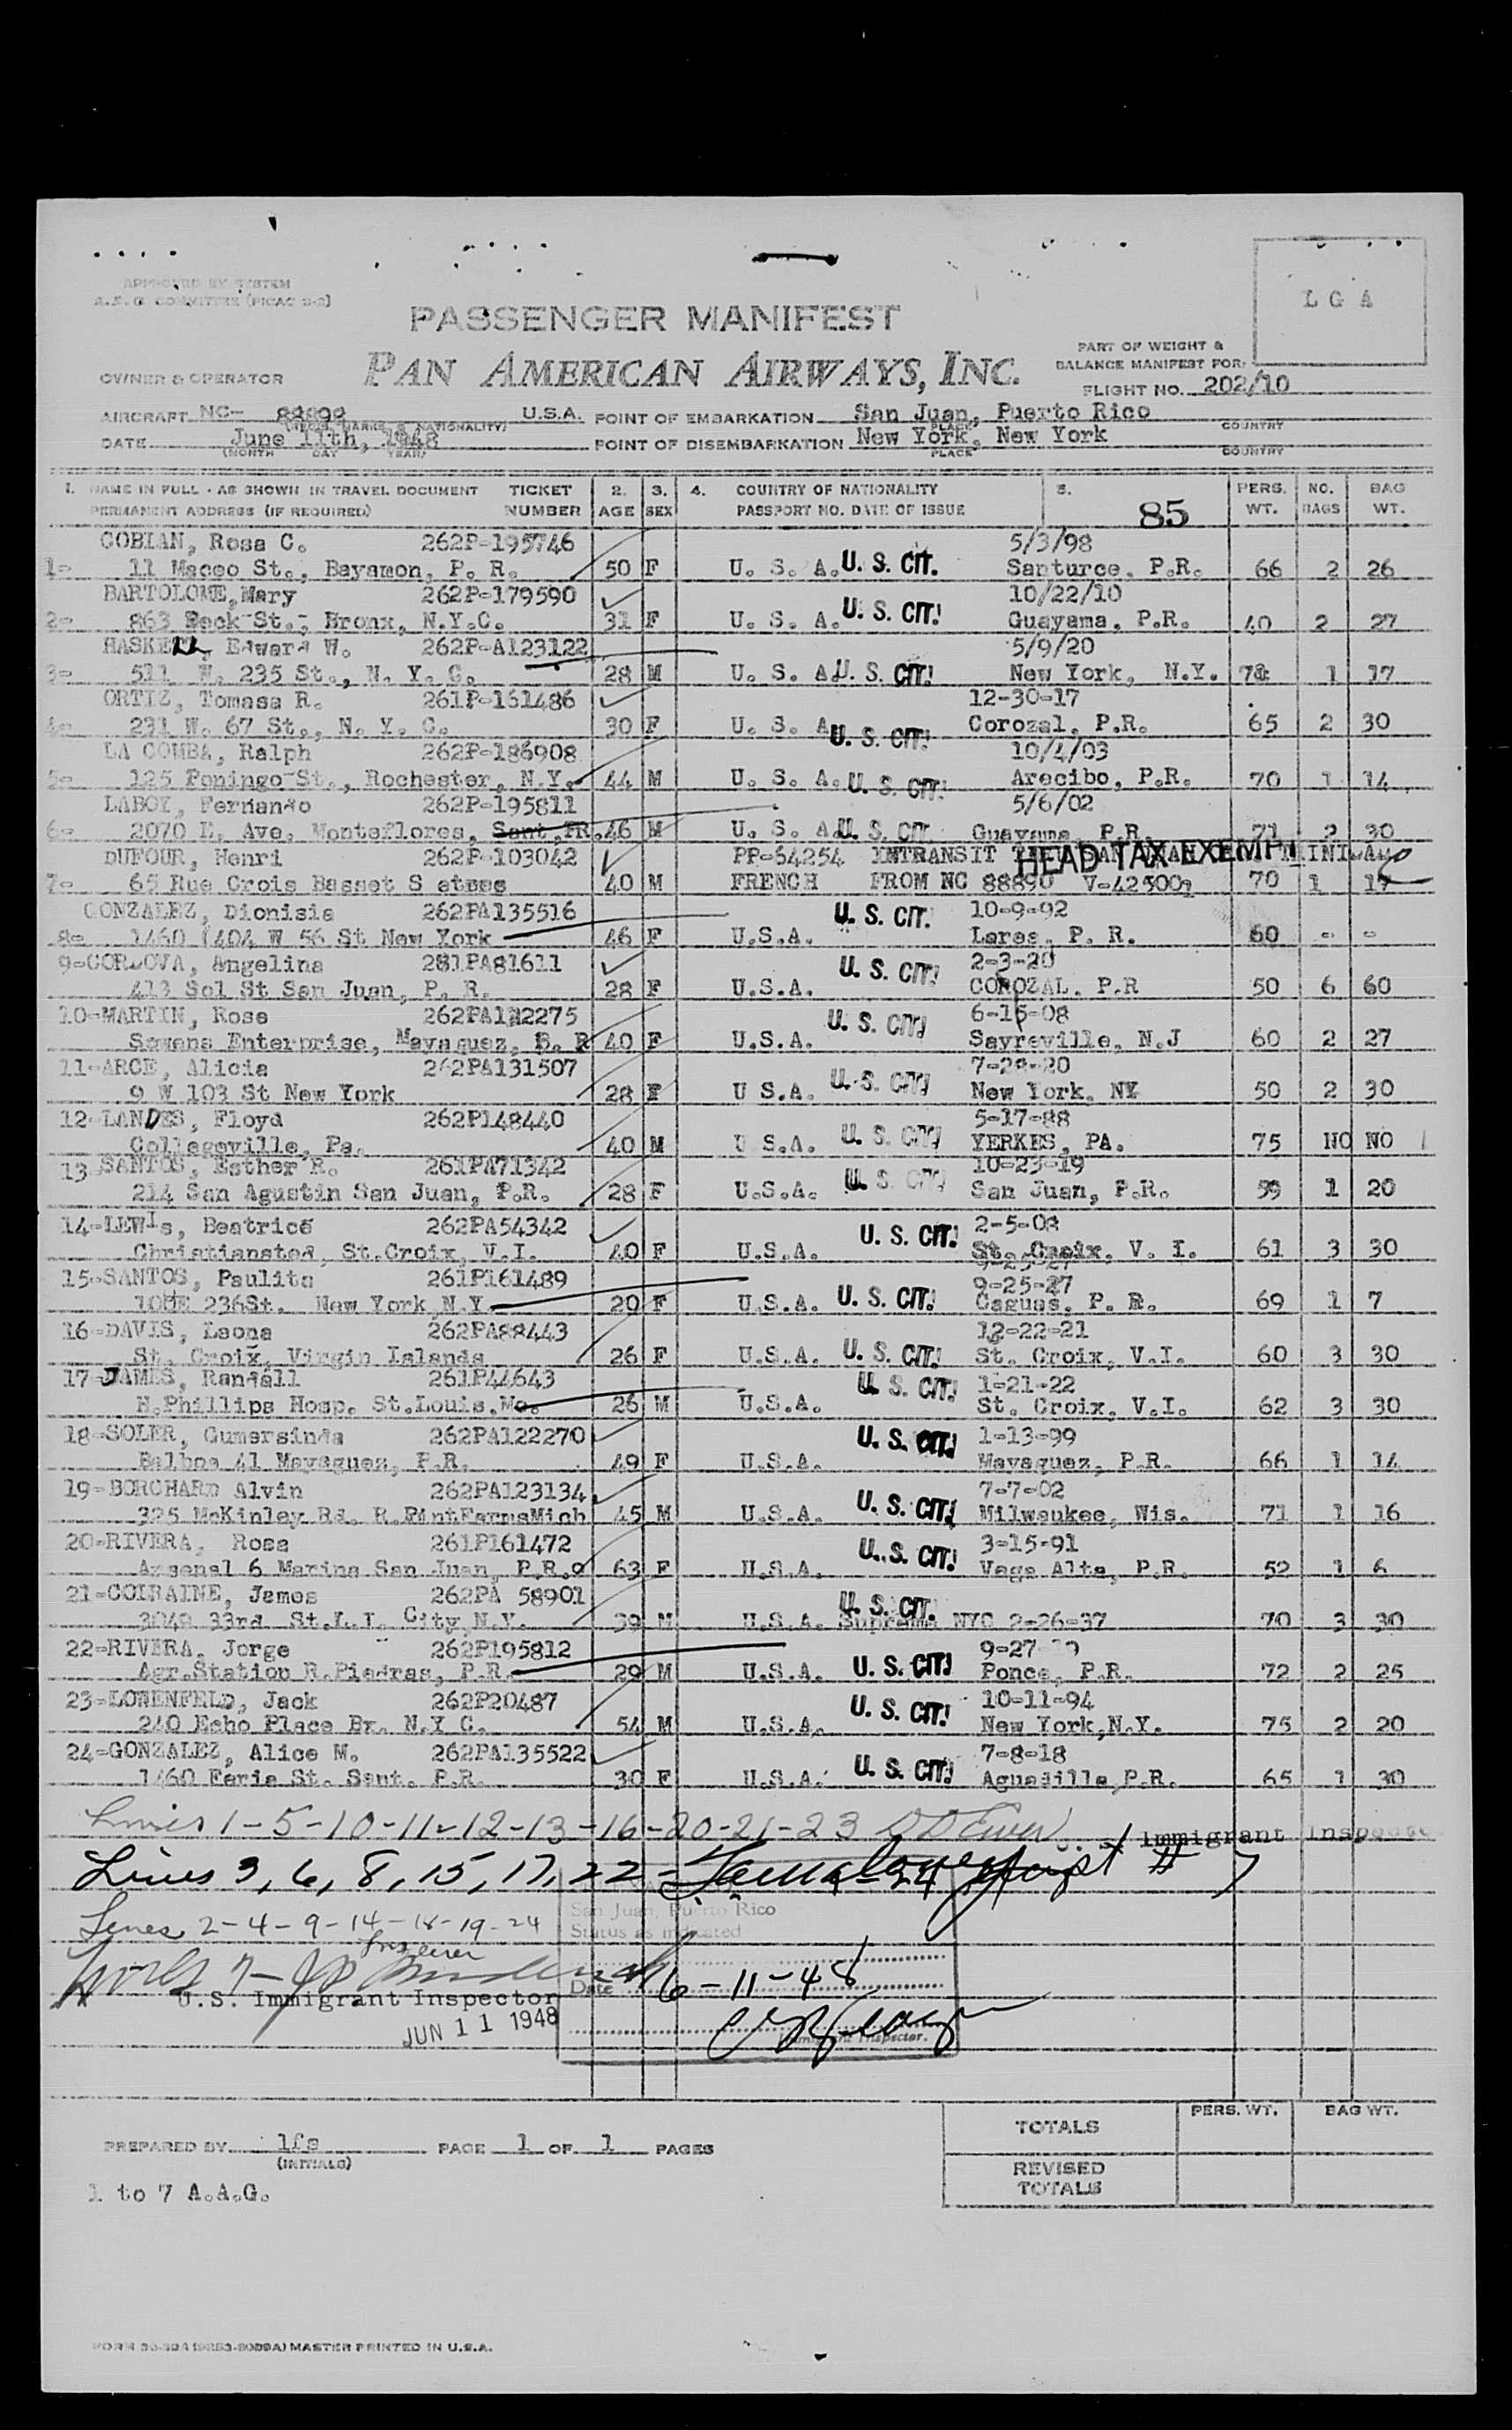 APPROVED BY SYSTEM
A.S.G. COMMITTEE (PICAC D-2)
L G A
PASSENGER MANIFEST
PAN AMERICAN AIRWAYS, INC.
PART OF WEIGHT &
BALANCE MANIFEST FOR:
OWNER & OPERATOR
FLIGHT NO. 202/10
AIRCRAFT NC- 88899 U.S.A. POINT OF EMBARKATION San Juan, Puerto Rico
(REGIS. MARKS & NATIONALITY) PLACE COUNTRY
DATE June 11th, 1948 POINT OF DISEMBARKATION New York, New York
(MONTH DAY YEAR) PLACE COUNTRY
1. NAME IN FULL - AS SHOWN IN TRAVEL DOCUMENT TICKET 2. 3. 4. COUNTRY OF NATIONALITY 5. PERS. NO. BAG
PERMANENT ADDRESS (IF REQUIRED) NUMBER AGE SEX PASSPORT NO. DATE OF ISSUE 85 WT. BAGS WT.
COBIAN, Rosa C. 262P-195746 5/3/98
1- 11 Maceo St., Bayamon, P. R. 50 F U. S. A. U. S. CIT. Santurce, P.R. 66 2 26
BARTOLOME, Mary 262P-179590 10/22/10
2- 863 Beck St., Bronx, N.Y.C. 31 F U. S. A. U. S. CIT! Guayama, P.R. 40 2 27
HASKELL, Edward W. 262P-A123122 5/9/20
3- 511 W. 235 St., N. Y. C. 28 M U. S. A. U. S. CIT! New York, N.Y. 1 17
ORTIZ, Tomasa R. 261P-161486 12-30-17
4- 231 W. 67 St., N. Y. C. 30 F U. S. A. U. S. CIT! Corozal, P.R. 65 2 30
LA COMBA, Ralph 262P-186908 10/4/03
5- 125 Poningo St., Rochester, N.Y. 44 M U. S. A. U. S. CIT! Arecibo, P.R. 70 1 14
LABOY, Fernando 262P-195811 5/6/02
6- 2070 E. Ave. Monteflores, Sant, PR. 46 M U. S. A. U. S. CIT Guayama, P.R. 71 2 30
DUFOUR, Henri 262P-103042 PP-64254 INTRANSIT HEAD TAX EXEMPT
7- 65 Rue Crois Basset S 40 M FRENCH FROM NC 88890 V-425009 70 1 17
GONZALEZ, Dionisia 262PA135516 U. S. CIT. 10-9-92
8- 1460 (404 W 56 St New York 46 F U.S.A. Lares, P. R. 60 - -
9-CORDOVA, Angelina 281PA81611 U. S. CIT! 2-3-20
413 Sol St San Juan, P. R. 28 F U.S.A. COROZAL, P.R 50 6 60
10-MARTIN, Rose 262PA122275 U. S. CIT! 6-15-08
Sowens Enterprise, Mayaguez, P. R 40 F U.S.A. Sayreville, N.J 60 2 27
11-ARCE, Alicia 262PA131507 7-28-20
9 W 103 St New York 28 F U S.A. U. S. CIT! New York, NY 50 2 30
12-LANDES, Floyd 262P148440 5-17-88
Collegeville, Pa. 40 M U S.A. U. S. CIT! YERKES, PA. 75 NO NO
13 SANTOS, Esther R. 261PA71342 10-23-19
214 San Agustin San Juan, P.R. 28 F U.S.A. U. S. CIT! San Juan, P.R. 99 1 20
14-LEWIs, Beatrice 262PA54342 2-5-08
Christiansted, St.Croix, V.I. 40 F U.S.A. U. S. CIT! St. Croix, V. I. 61 3 30
9-25-27
15-SANTOS, Paulita 261P161489 9-25-27
236St. New York N.Y. 20 F U.S.A. U. S. CIT! Caguas, P. R. 69 1 7
16-DAVIS, Leona 262PA88443 12-22-21
St. Croix, Virgin Islands 26 F U.S.A. U. S. CIT! St. Croix, V.I. 60 3 30
17-JAMES, Randall 261P44643 U. S. CIT! 1-21-22
H.Phillips Hosp. St.Louis, Mo. 26 M U.S.A. St. Croix, V.I. 62 3 30
18-SOLER, Gumersinda 262PA122270 U. S. CIT! 1-13-99
Balboa 41 Mayaguez, P.R. 49 F U.S.A. Mayaguez, P.R. 66 1 14
19-BORCHARD Alvin 262PA123134 7-7-02
325 McKinley Rd. 45 M U.S.A. U. S. CIT! Milwaukee, Wis. 71 1 16
20-RIVERA, Rosa 261P161472 U. S. CIT! 3-15-91
Arsenal 6 Marina San Juan, P.R. 63 F U.S.A. Vega Alta, P.R. 52 1 6
21-COLRAINE, James 262PA 58901 U. S. CIT.
3048 33rd St.L.I. City,N.Y. 39 M U.S.A. Supreme NYC 2-26-37 70 3 30
22-RIVERA, Jorge 262P195812 9-27-19
Agr.Station R.Piedras, P.R. 29 M U.S.A. U. S. CIT! Ponce, P.R. 72 2 25
23-LOWENFELD, Jack 262P20487 10-11-94
240 Echo Place Bx. N.Y C. 54 M U.S.A. U. S. CIT! New York,N.Y. 75 2 20
24-GONZALEZ, Alice M. 262PA135522 7-8-18
1460 Feria St. Sant. P.R. 30 F U.S.A. U. S. CIT! Aguadilla,P.R. 65 1 30
Lines 1-5-10-11-12-13-16-20-21-23
Immigrant Inspector
Lines 3, 6, 8, 15, 17, 22 -
Lines 2-4-9-14-18-19-24
San Juan, Puerto Rico
Status as indicated
Inspector
U.S. Immigrant Inspector
Date 6-11-48
JUN 11 1948
Immigrant Inspector.
TOTALS PERS. WT. BAG WT.
PREPARED BY lfs PAGE 1 OF 1 PAGES
(INITIALS)
REVISED
TOTALS
1 to 7 A.A.G.
MASTER PRINTED IN U.S.A.